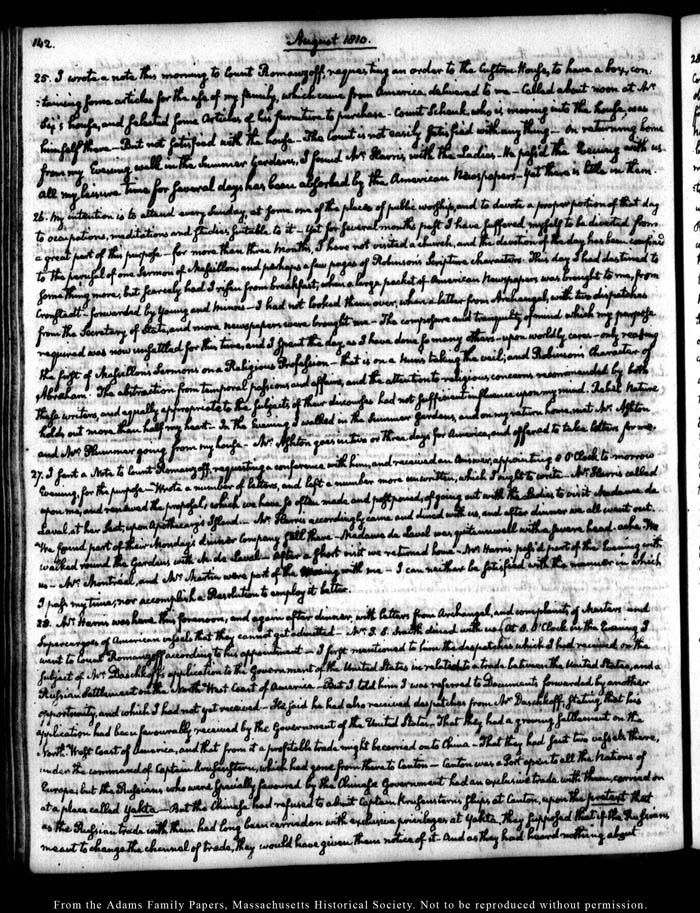 142.
August 1810.
25. I wrote a note this morning to Count Romanzoff, requesting an order to the Custom House, to have a box, con-
:taining some articles for the use of my family, which came from America, delivered to me – Called about noon at Mr
Six's house, and selected some Articles of his furniture to purchase – Count Schenk, who is moving into the house, was
himself there – But not satisfied with the house – The Count is not easily satisfied with any thing – On returning home
from my Evening walk in the Summer Gardens, I found Mr Harris, with the Ladies – He pass'd the Evening with us.
All my leisure time for several days has been absorbed by the American Newspapers – Yet there is little in them.
26. My intention is to attend every Sunday, at some one of the places of public worship, and to devote a proportion of that day
to occupations, meditations and studies, suitable to it – Yet for several months past I have suffered myself to be diverted from
a great part of this purpose – for more than three Months, I have not visited a church, and the devotion of the day has been confined
to the perusal of one Sermon of Massillon, and perhaps a few pages of Robinson's Scripture characters. This day I had destined to
something more, but scarcely had I risen from breakfast, when a large packet of American Newspapers was brought to me, from
Cronstadt – forwarded by Young and Minors – I had not looked them over, when a letter from Archangel, with two dispatches
from the Secretary of State, and more newspapers were brought me – The composure and tranquility of mind which my purpose
required was now unsettled for this time, and I spent the day, as I have done so many others – upon worldly cares – only reading
the first of Massillon's Sermons on a Religious Profession – that is on a Nun's taking the veil; and Robinson's Character of
Abraham. The abstraction from temporal passions and affairs, and the attention to religious concerns recommended by both
these writers, and equally appropriate to the subjects of their discourse had not sufficient influence upon my mind. Rebel Nature
holds out more than half my heart – In the Evening I walked in the Summer Gardens, and on my return home, met Mr Ashton
and Mr Plummer going from my house – Mr Ashton goes in two or three days for America, and offered to take letters for me.
27. I sent a Note to Count Romanzoff, requesting a conference with him, and received an Answer, appointing 8 O'Clock to-morrow
Evening, for the purpose – Wrote a number of letters, and left a number more unwritten, which I ought to write – Mr Harris called
upon me, and renewed the proposal, which we have so often made and postponed, of going out with the Ladies to visit Madame de
Laval, at her seat, upon Apothecary's Island – Mr Harris accordingly came and dined with us, and after dinner we all went out.
We found part of their Monday's dinner Company still there – Madame de Laval was quite unwell with a severe head-ache. We
walked round the Gardens with M. de Laval – After a short visit we returned home – Mr Harris pass'd part of the Evening with
us – Mr Montréal, and Mr Martin were part of the with me – I can neither be satisfied with the manner in which
I pass my time, nor accomplish a Resolution to employ it better.
28. Mr Harris was here this forenoon, and again after dinner, with letters from Archangel, and complaints of Masters and
Supercargoes of American vessels that they cannot get admitted – Mr J. S. Smith dined with us. At 8. O'Clock in the Evening I
went to Count Romanzoff according to his appointment – I first mentioned to him the despatches which I had received on the
subject of Mr Daschkoff's application to the Government of the United States in relation to a trade between the United States, and a
Russian settlement on the North West Coast of America – But I told him I was referred to Documents forwarded by another
opportunity, and which I had not yet received – He said he had also received despatches from Mr Daschkoff, stating that his
application had been favourably received by the Government of the United States – That they had a growing settlement on the
North West Coast of America, and that from it a profitable trade might be carried on to China – That they had sent two vessels there,
under the command of Captain Krusenstern, which had gone from thence to Canton – Canton was a Port open to all the Nations of
Europe; but the Russians who were specially favoured by the Chinese Government had an exclusive trade with them, carried on
at a place called Yakta – But the Chinese had refused to admit Captain Krusenstern's ships at Canton, upon the pretext that
as the Russian trade with them had long been carried on with exclusive privileges at Yakta, they supposed that if the Russians
meant to change the channel of trade, they would have given them notice of it – And as they had heard nothing about
From the Adams Family Papers, Massachusetts Historical Society. Not to be reproduced without permission.